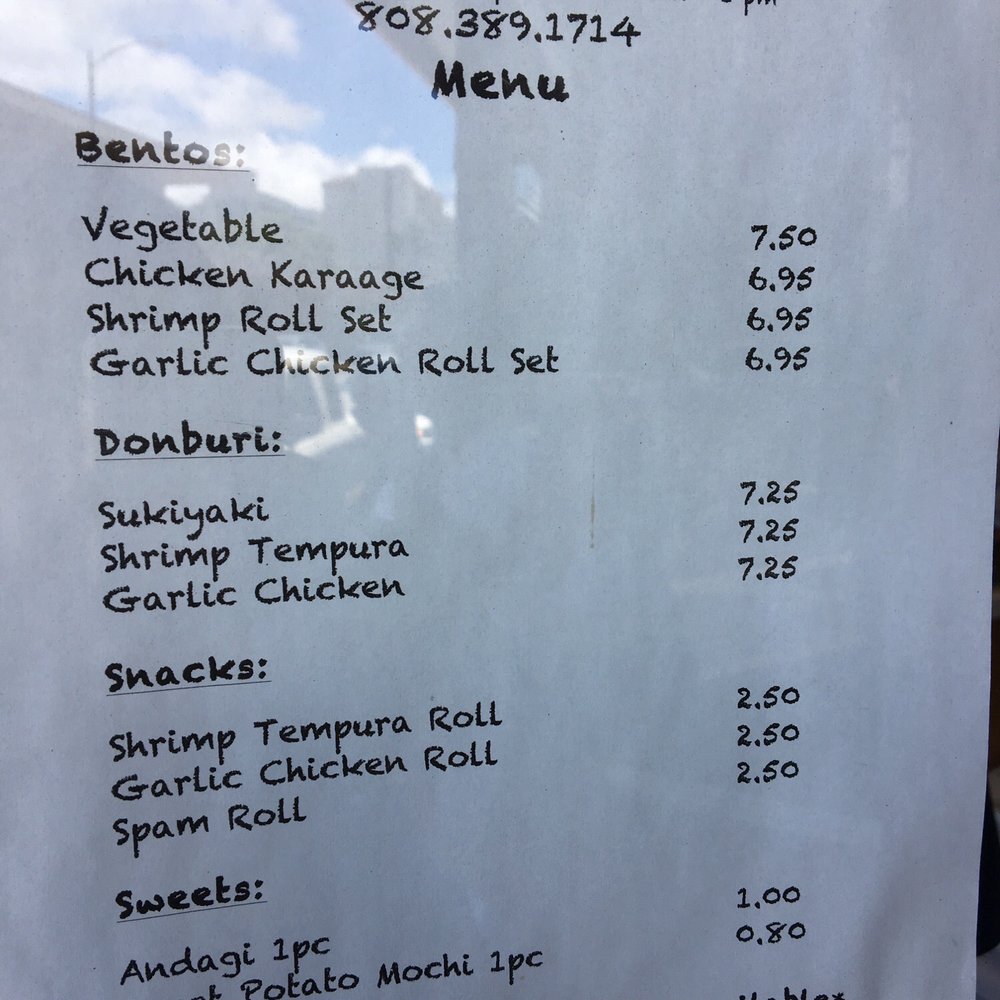 pm
808.389.1714
Menu
Bentos:
Vegetable 7.50
Chicken Karaage 6.95
Shrimp Roll Set 6.95
Garlic Chicken Roll Set 6.95
Donburi:
Sukiyaki 7.25
Shrimp Tempura 7.25
Garlic Chicken 7.25
Snacks:
Shrimp Tempura Roll 2.50
Garlic Chicken Roll 2.50
Spam Roll 2.50
Sweets:
Andagi 1pc 1.00
Potato Mochi 1pc 0.80